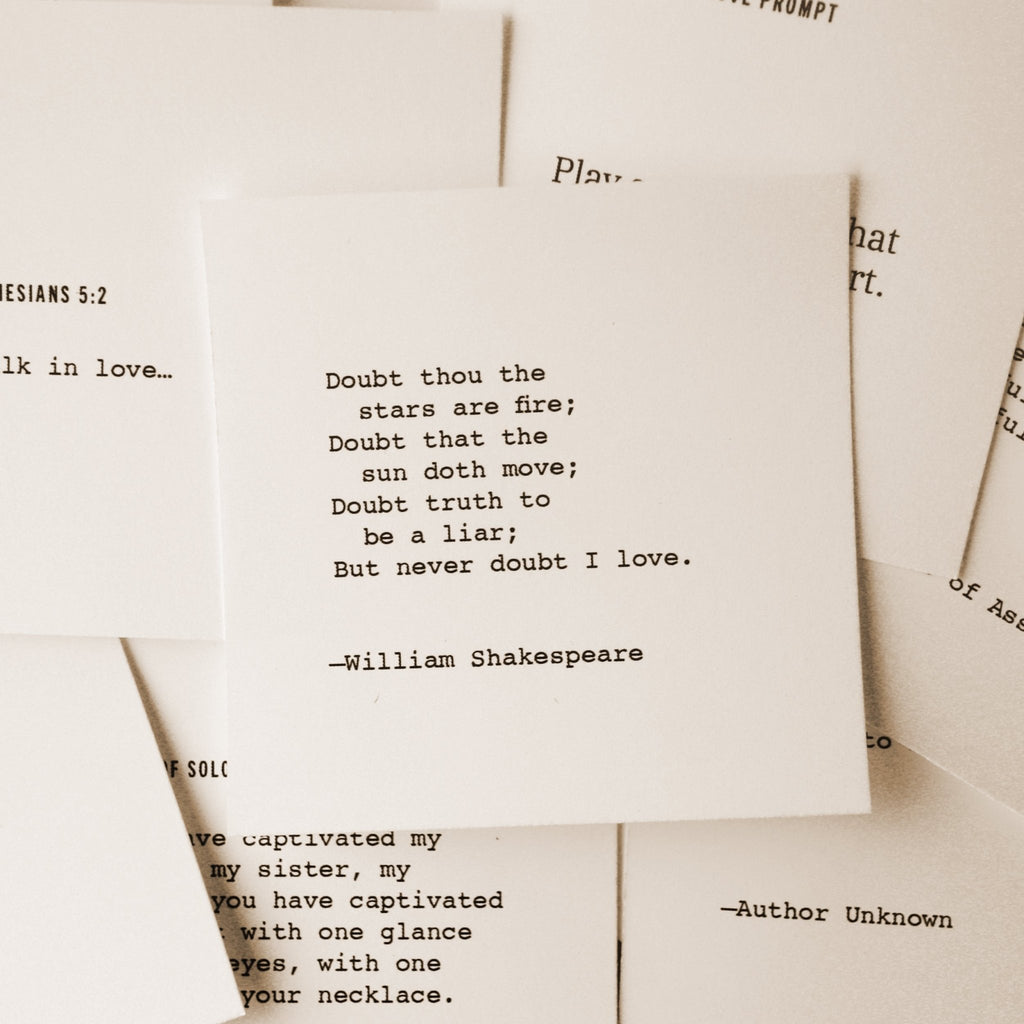 PROMPT
Play
hat
rt.
ESIANS 5:2
lk in love…
Doubt thou the
stars are fire;
Doubt that the
sun doth move;
Doubt truth to
be a liar;
But never doubt I love.
—William Shakespeare
of Ass
to
F SOLO
ve captivated my
my sister, my
you have captivated
with one glance
eyes, with one
your necklace.
—Author Unknown